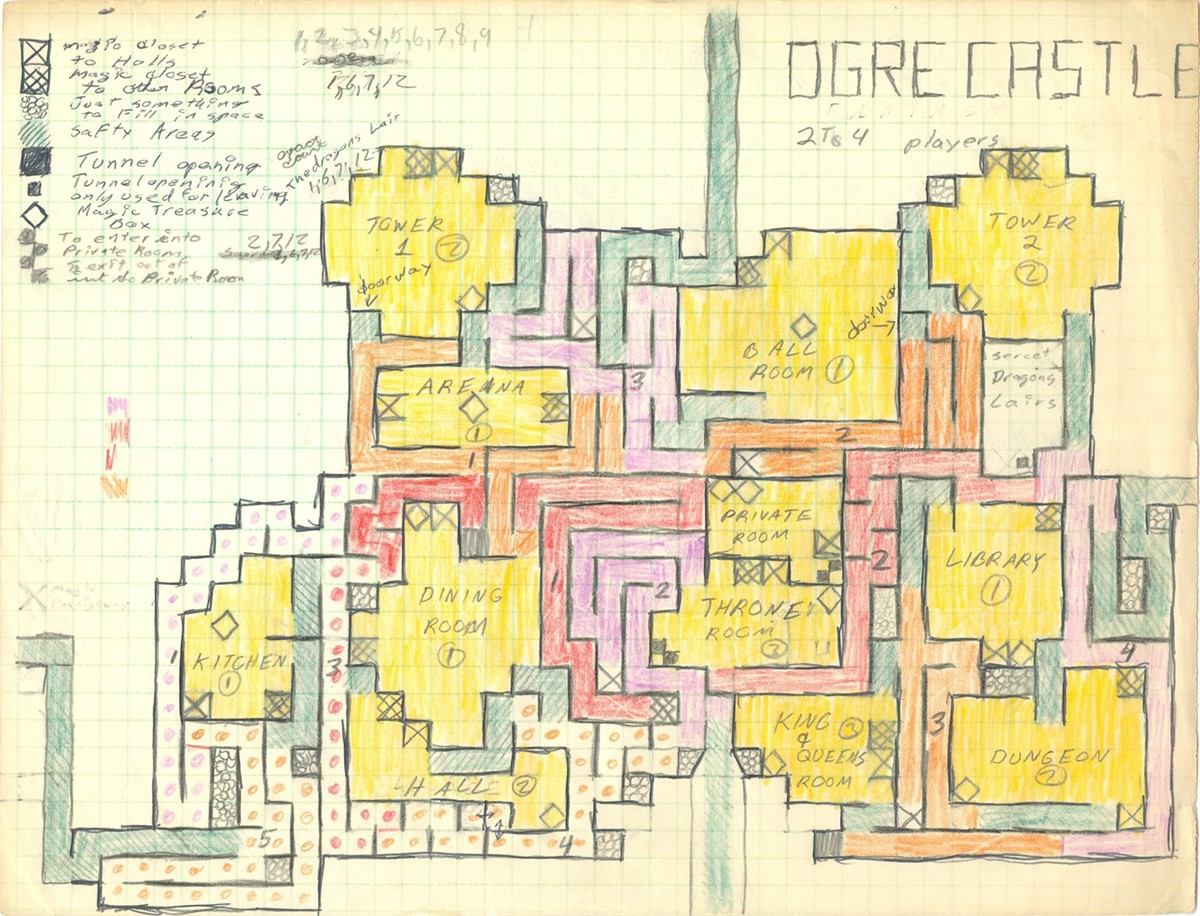 OGRE CASTLE
2 To 4 players
1, 2, 3, 4, 5, 6, 7, 8, 9
1, 6, 7, 12
magic closet
to Halls
Magic closet
to other Rooms
Just something
to Fill in space
Safty Areas
Tunnel opening
Tunnel opening
only used for leaving
Magic Treasure
Box
To enter into
Private Room
To exit out of
Private Room
2, 7, 12
The dragons Lair
1, 6, 7, 12
TOWER
1 2
doorway
TOWER
2
2
BALL
ROOM 1
doorway
sercet
Dragons
Lairs
ARENNA
1
3
2
1
PRIVATE
ROOM
LIBRARY
1
DINING
ROOM
1
1
2
2
THRONE
ROOM
2
KITCHEN
1
1
3
4
KING
&
QUEENS
ROOM
2
3
DUNGEON
2
HALL 2
5
4